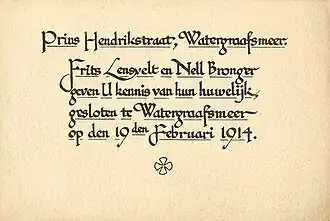 Prins Hendrikstraat, Watergraafsmeer.
Frits Lensvelt en Nell Bronger
geven U kennis van hun huwelijk,
gesloten te Watergraafsmeer
op den 19den Februari 1914.